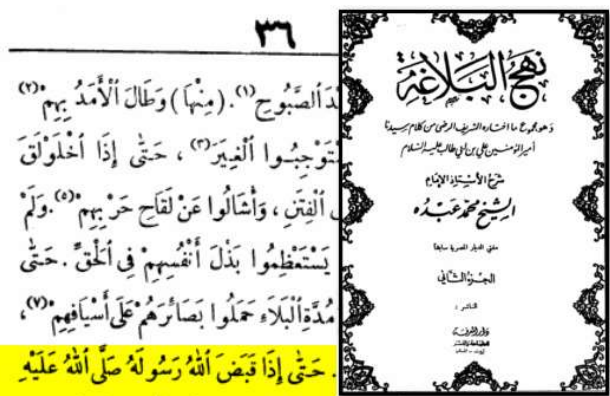 ٣٦
دَ ٱلصَّبُوحِ (١). (مِنْهَا) وَطَالَ ٱلْأَمَدُ بِهِمْ (٢)
تَوْجِبُوا ٱلْغِيَرَ (٣) ، حَتَّى إِذَا ٱخْلَوْلَقَ
ٱلْفِتَنِ ، وَأَشَالُوا عَنْ لَقَاحِ حَرْبِهِمْ (٥). وَلَمْ
يَسْتَعْظِمُوا بَذْلَ أَنْفُسِهِمْ فِي ٱلْحَقِّ . حَتَّى
مُدَّةِ ٱلْبَلَاءِ حَمَلُوا بَصَائِرَهُمْ عَلَى أَسْيَافِهِمْ (٧)،
. حَتَّى إِذَا قَبَضَ ٱللهُ رَسُولَهُ صَلَّى ٱللهُ عَلَيْهِ
نهج البلاغة
وهو مجموع ما اختاره الشريف الرضي من كلام سيدنا
أمير المؤمنين علي بن أبي طالب عليه السلام
شرح الأستاذ الإمام
الشيخ محمد عبده
مفتي الديار المصرية سابقا
الجزء الثاني
الناشر :
دار المعرفة
للطباعة والنشر
بيروت - لبنان